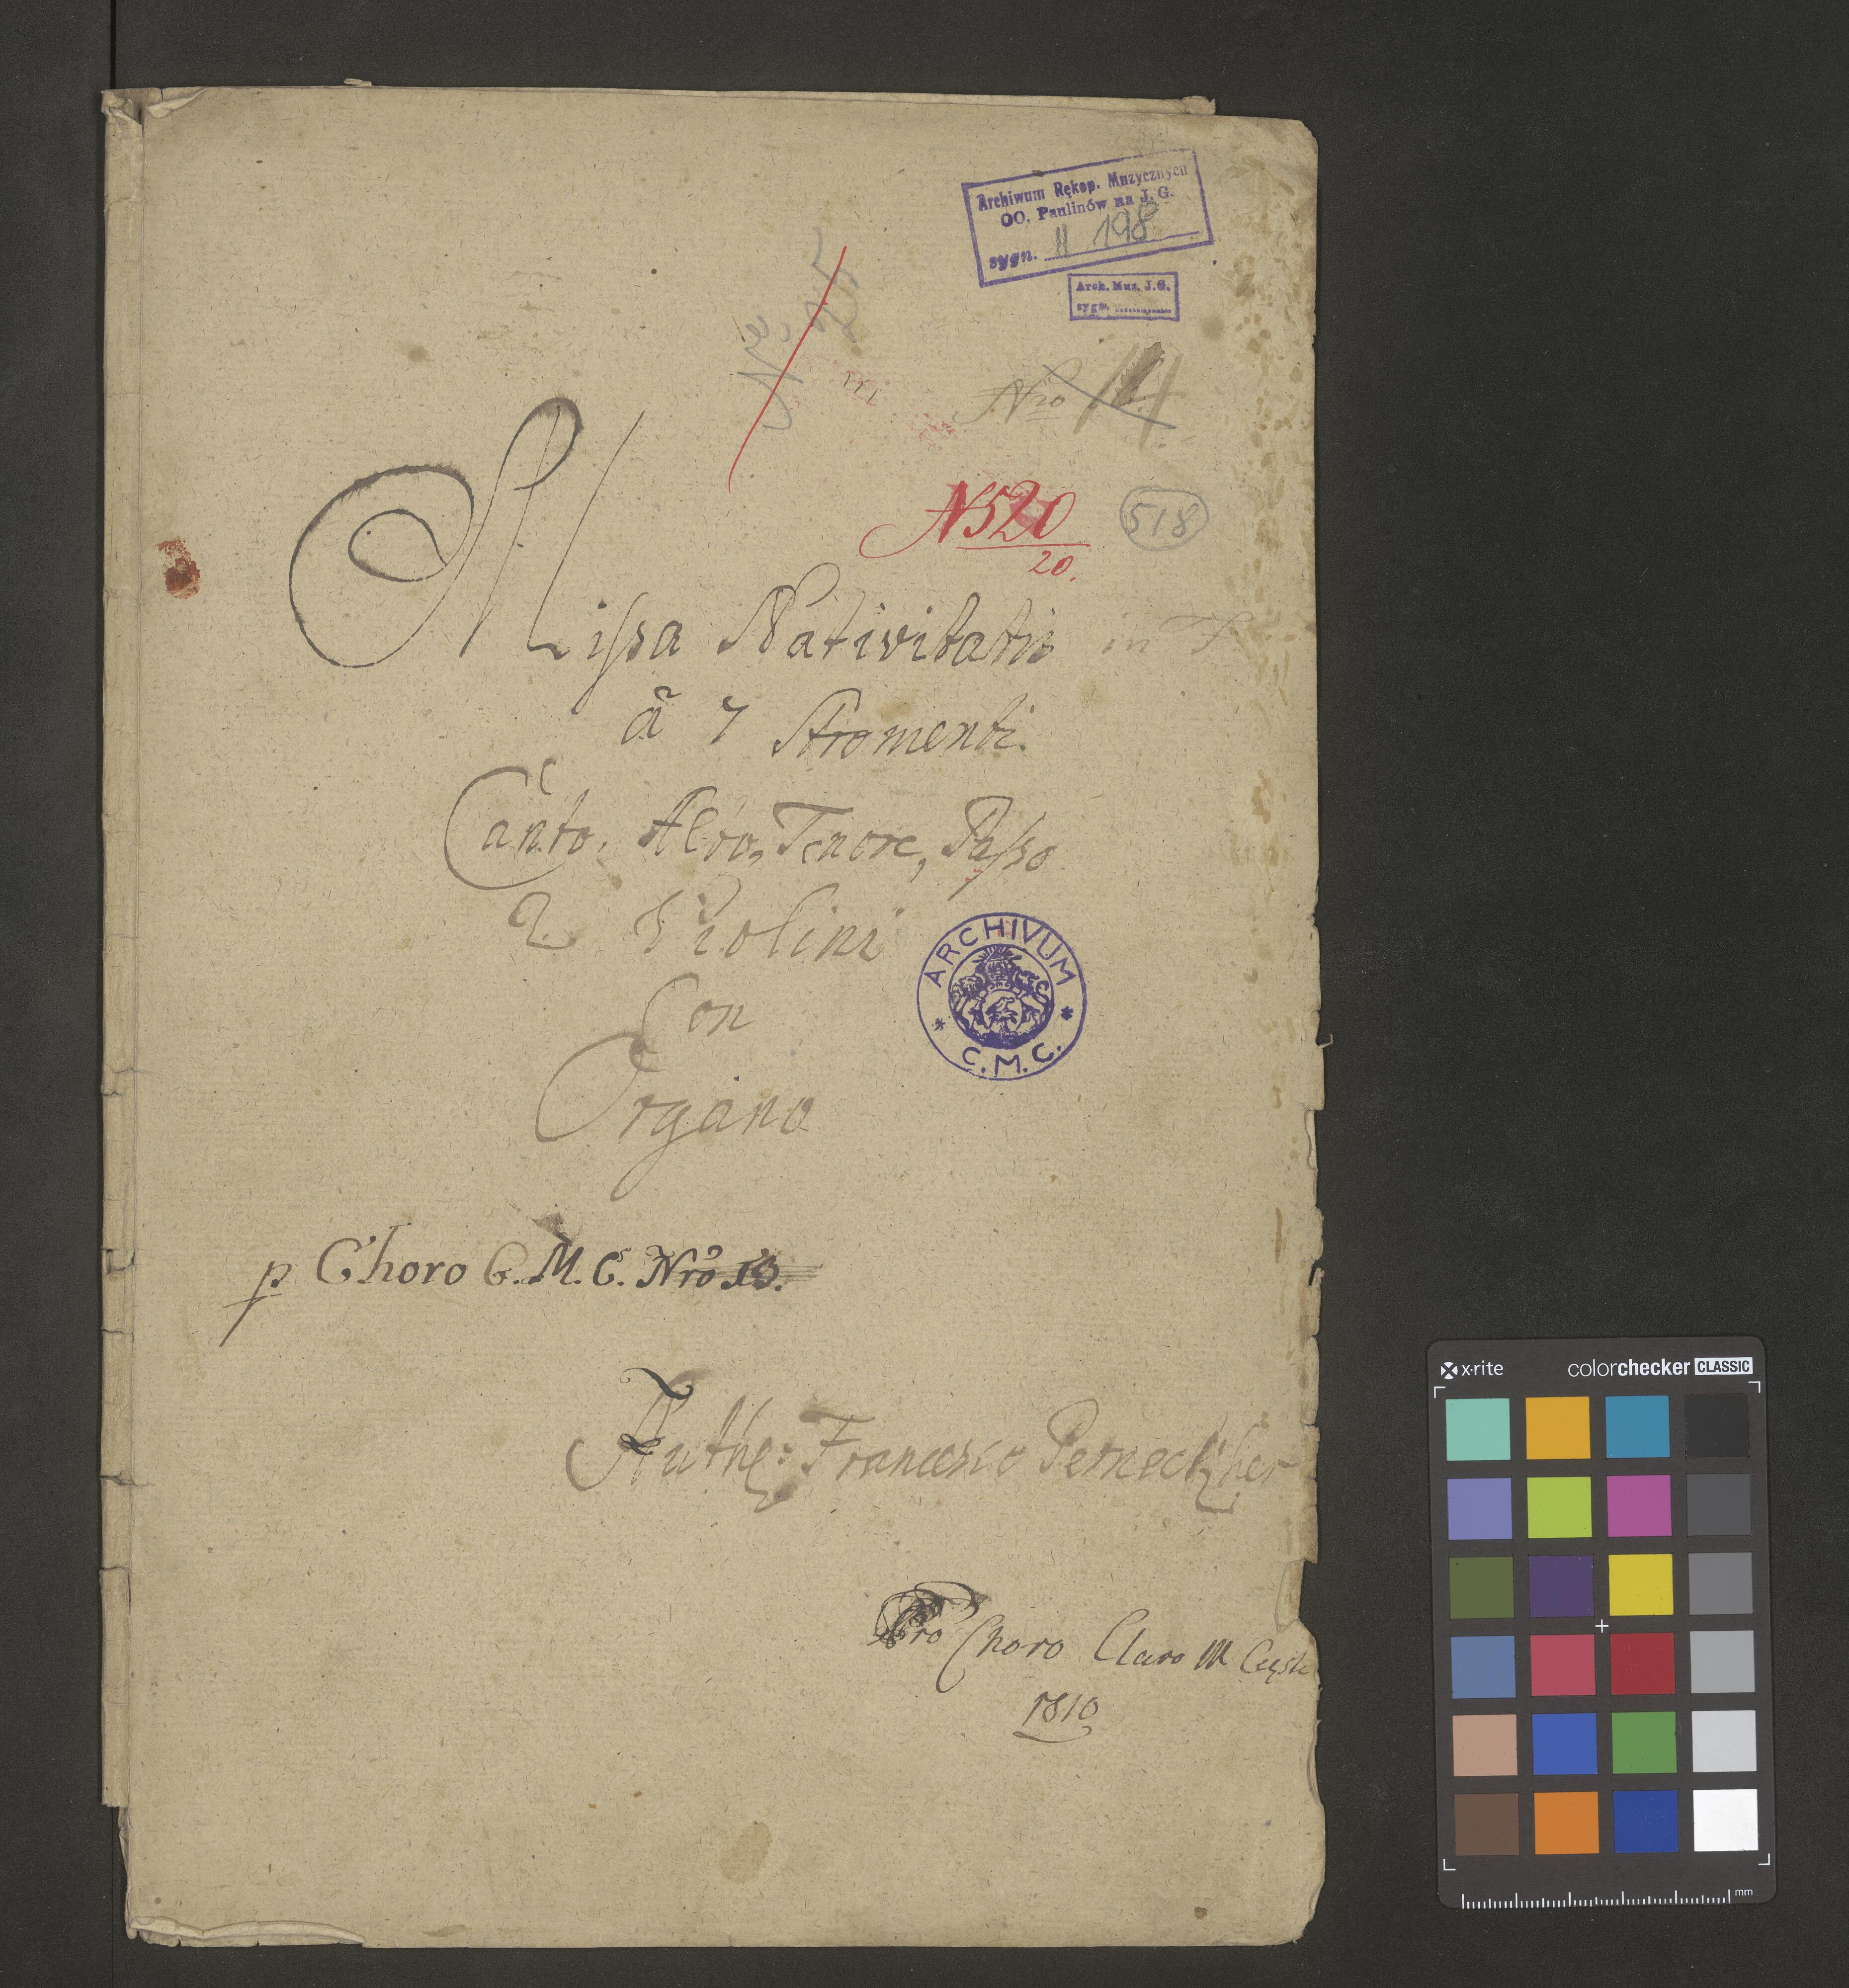 Archiwum Rękop. Muzycznych
OO. Paulinów na J. G.
sygn. II 198
Arch. Muz. J. G.
sygn.
Nro
N 520
20.
518
Missa Nativitatis in F
â 7 Stromenti.
Canto, Alto, Tenore, Basso
2 Violini
Con
Organo
ARCHIVUM
C.M.C.
p Choro C. M. C. Nrõ 13.
Auth: Francesco Perneckher
Pro Choro Claro M Cęsto
1810
x-rite colorchecker CLASSIC
mm